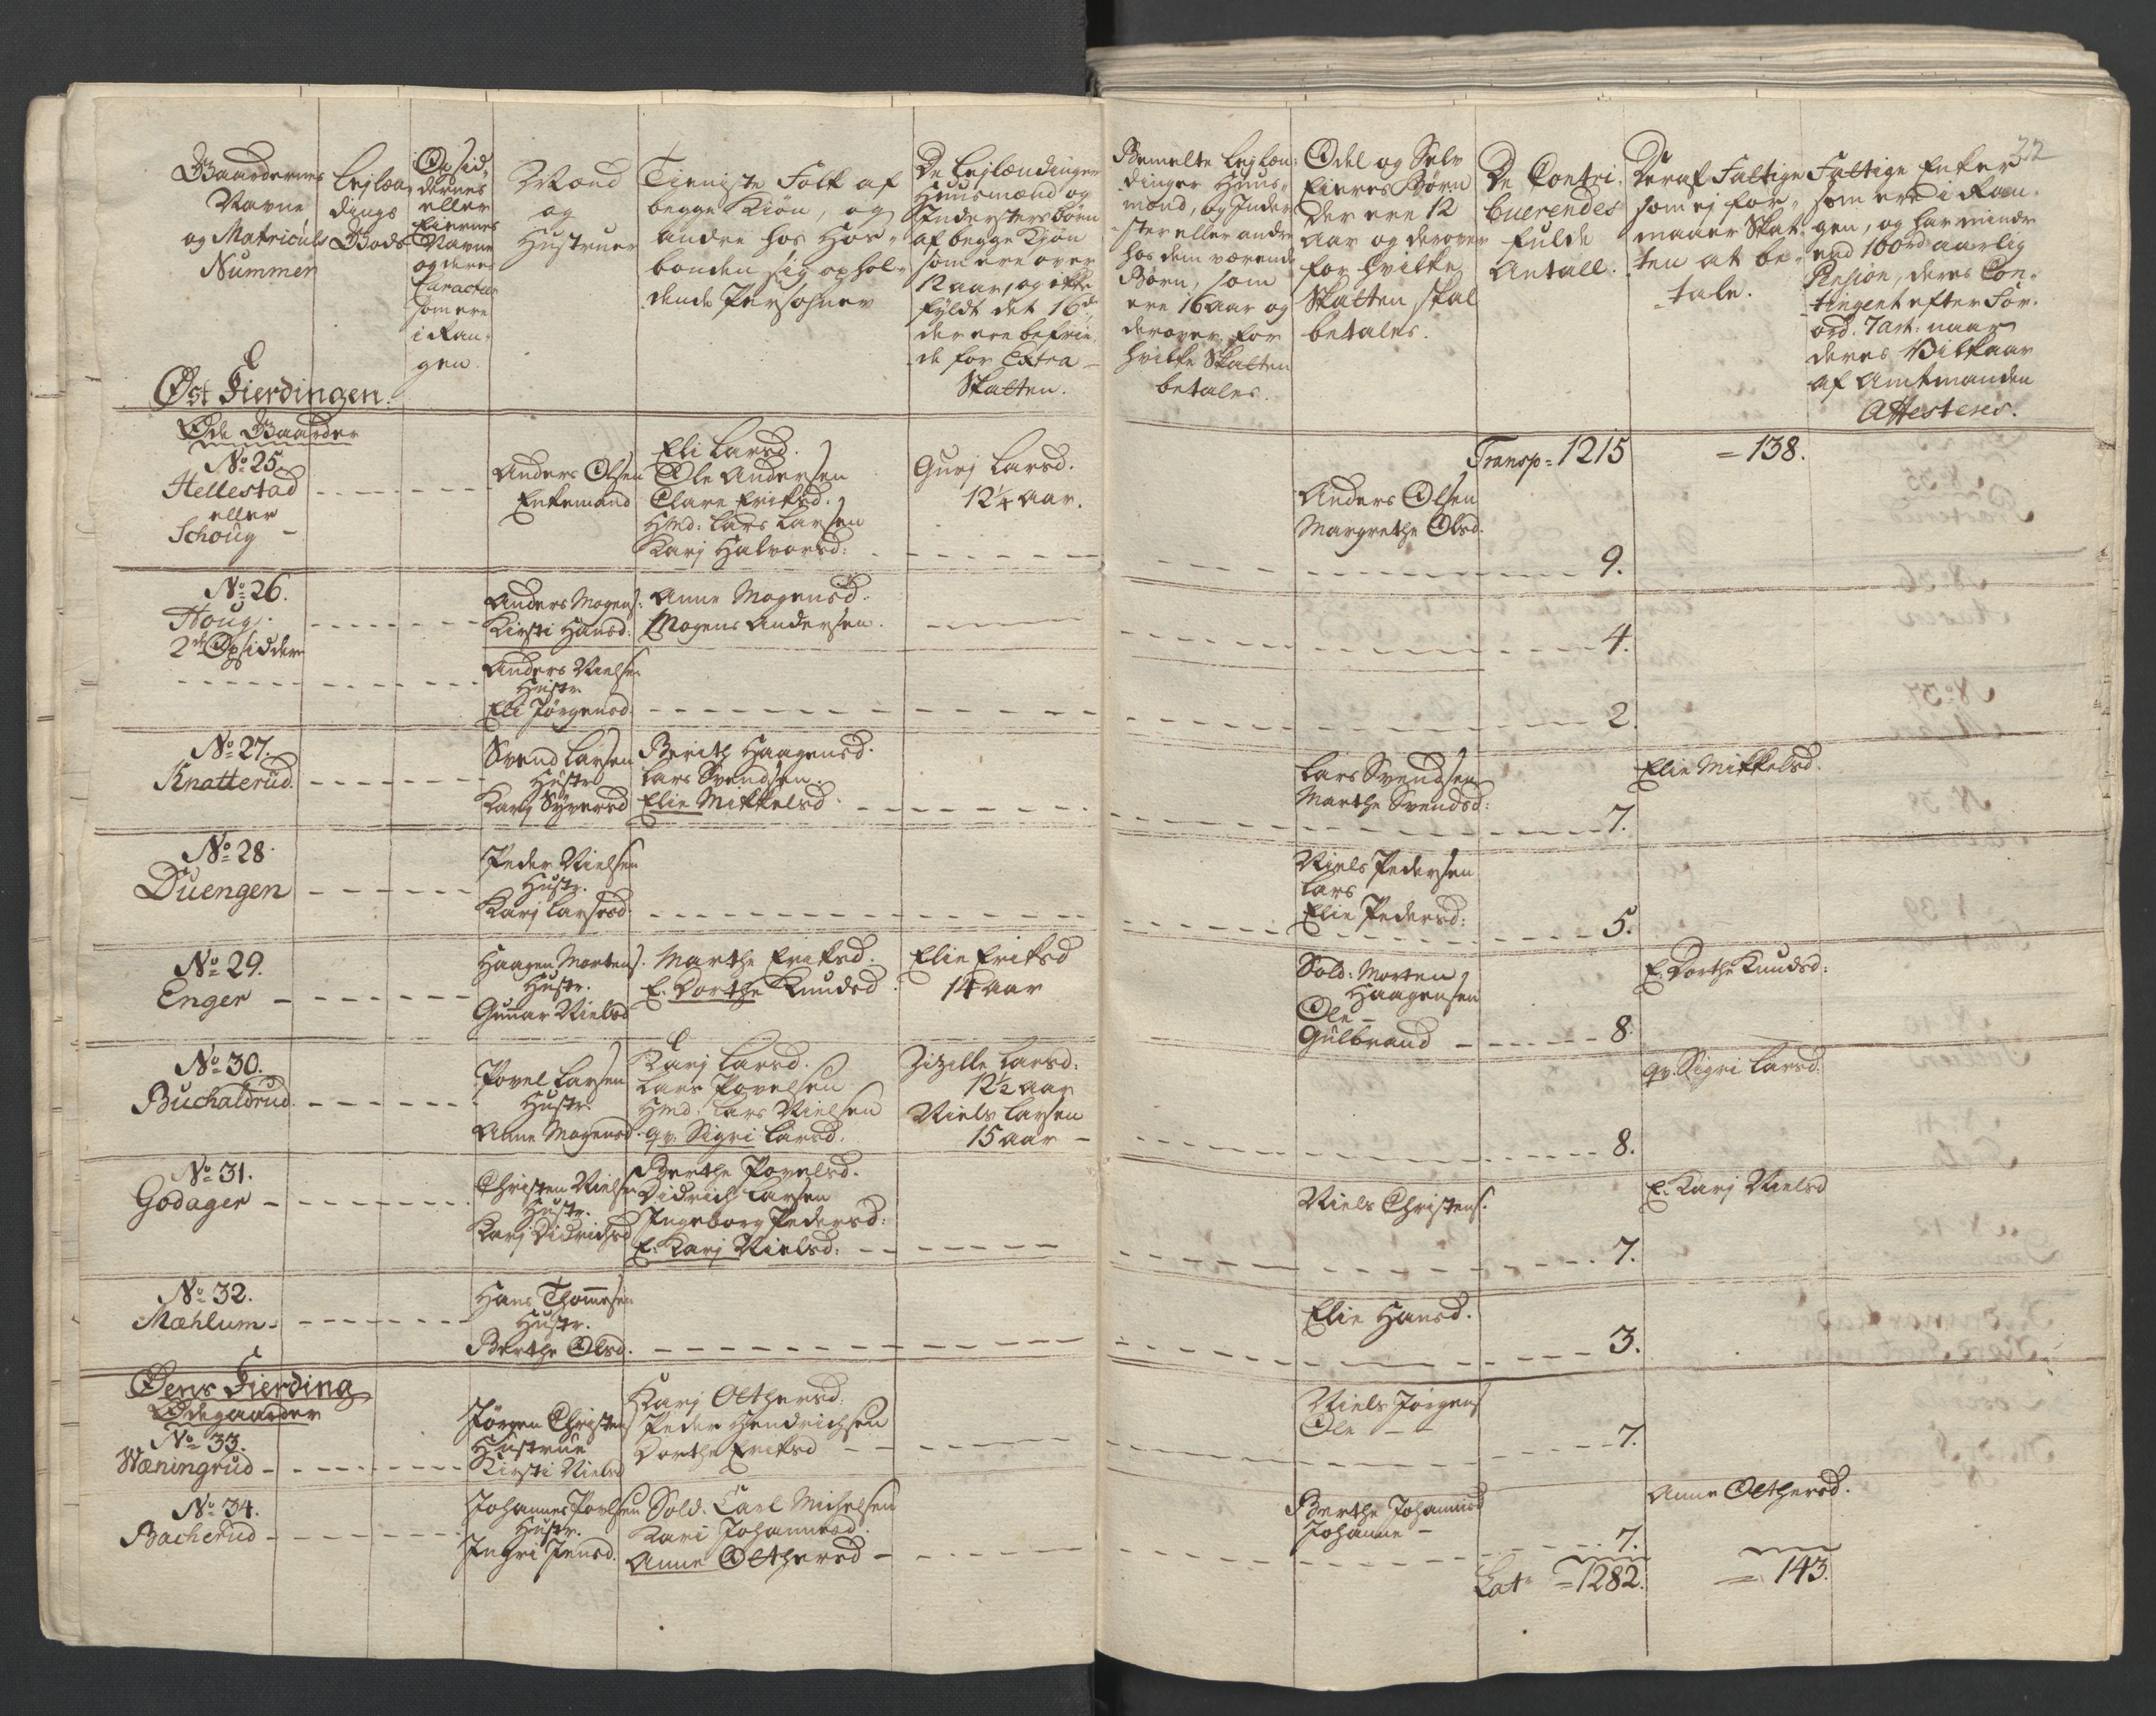 22
Gaardernes
Navne
og Matriculs
Nummer
Lejlæn
dings
Bøds
Opsid
dernes
eller
Eiernes
Navne
og deres
Caracteer
som ere
i Ran
gen.
Mænd
og
Hustruer
Tieniste Folk af
begge Kiøn, og
andre hos Hos-
bonden sig ophol-
dende Persohner
De Lejlændinger
Huusmænd og
Inderstersbørn
af begge Kiøn
som ere over
12 aar, og ikke
fyldt det 16de,
der ere befrie
de for Extra
Skatten.
Bemelte Lejlæn-
dinger Huus-
mænd, og Inder
ster eller andre
hos dem værende
Børn, som
ere 16 aar og
derover, for
hvilke Skatten
betales.
Odel og Selv
Eieres Børn
der ere 12
aar og derover
for hvilke
Skatten skal
betales.
De Contri-
buerendes
fulde
Antall.
Deraf Fattige
som ej for-
maaer Skat-
ten at be-
tale.
Fattige Enker
som ere i Ran-
gen, og har mindre
end 100rd aarlig
Pension, deres Con-
tingent efter For-
ord. 7 art: naar
deres Vilkaar
af Amtmanden
Attesteres.
Øst Fierdingen.
Øde Gaarder
Transp = 1215 = 138.
No 25
Hellestad
eller
Schoug
Anders Olsen
Enkemand
Eli Larsd.
Ole Andersen
Clare Eriksd.
Hmd: Lars Larsen
Karj Halvorsd:
Gurj Larsd.
12 1/4 aar.
Anders Olsen
Margrethe Olsd.
9.
No 26.
Houg.
2de Opsidder
Anders Mogens:
Kirsti Hansd.
Anne Mogensd.
Mogens Andersen.
4.
Anders Nielsen
Hustr.
Eli Jørgensd.
2.
No 27.
Knatterud.
Svend Larsen
Hustr.
Karj Syversd
Berith Haagensd.
Lars Svendsen.
Elie Mikkelsd.
Lars Svendsen
Marthe Svendsd:
7.
Elie Mikkelsd.
No 28.
Duengen
Peder Nielsen
Hustr.
Karj Larsesd.
Niels Pedersen
Lars
Elie Pedersd:
5.
No 29.
Enger
Haagen Mortens.
Hustr.
Gunnar Nielsd
Marthe Eriksd.
E. Dorthe Knudsd.
Elie Eriksd
14 aar
Sold: Morten
Haagensen
Ole —
Gulbrand
8.
E. Dorthe Knudsd:
No 30.
Buchaldrud.
Povel Larsen
Hustr.
Anne Mogensd.
Karj Larsd.
Lars Povelsen
Hmd. Lars Nielsen
qv. Sigri Larsd.
Zizille Larsd:
12 1/2 aar
Niels Larsen
15 aar
8.
qv. Sigri Larsd.
No 31.
Godager
Christen Nielsen
Hustr.
Karj Didrichsd
Berthe Povelsd.
Didrich Larsen
Ingeborg Pedersd:
E: Karj Nielsd:
Niels Christens.
7.
E. Karj Nielsd
No 32.
Mæhlum
Hans Thommesen
Hustr.
Berthe Olsd.
Elie Hansd.
3.
Øens Fierding
Ødegaarder
No 33.
Wæningrud
Jørgen Christens
Hustrue
Kirsti Nielsd
Karj Olthersd.
Peder Hendrichsen
Dorthe Eriksd
Niels Jørgens
Ole — —
7.
No 34.
Bacherud
Johannes Povlsen
Hustr.
Ingri Jensd.
Sold. Carl Michelsen
Kari Johannesd.
Anne Olthersd
Berthe Johannesd
Johanne —
7.
Anne Olthersd.
Lat. = 1282. = 143.